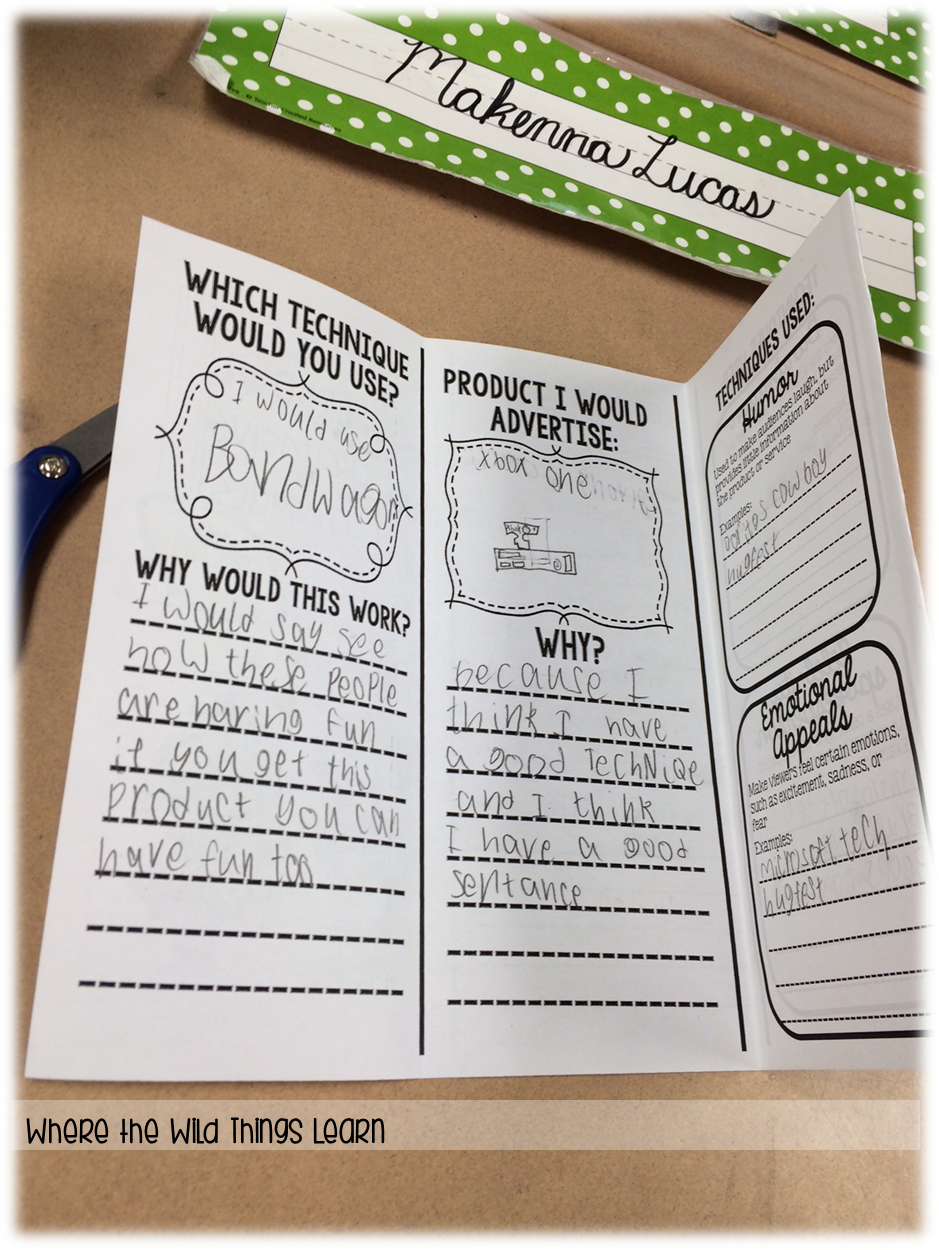 Makenna Lucas
WHICH TECHNIQUE
WOULD YOU USE?
I would use
Bandwagon
WHY WOULD THIS WORK?
I would say see
how these people
are having fun
if you get this
product you can
have fun too
PRODUCT I WOULD
ADVERTISE:
xbox one
WHY?
because I
think I have
a good TechNiqe
and I think
I have a good
sentance
TECHNIQUES USED:
Humor
Used to make audiences laugh, but
provides little information about
the product or service
Examples:
cowboy
hugfest
Emotional
Appeals
Make viewers feel certain emotions,
such as excitement, sadness, or
fear
Examples:
microsoft tech
hugfest
Where the Wild Things Learn